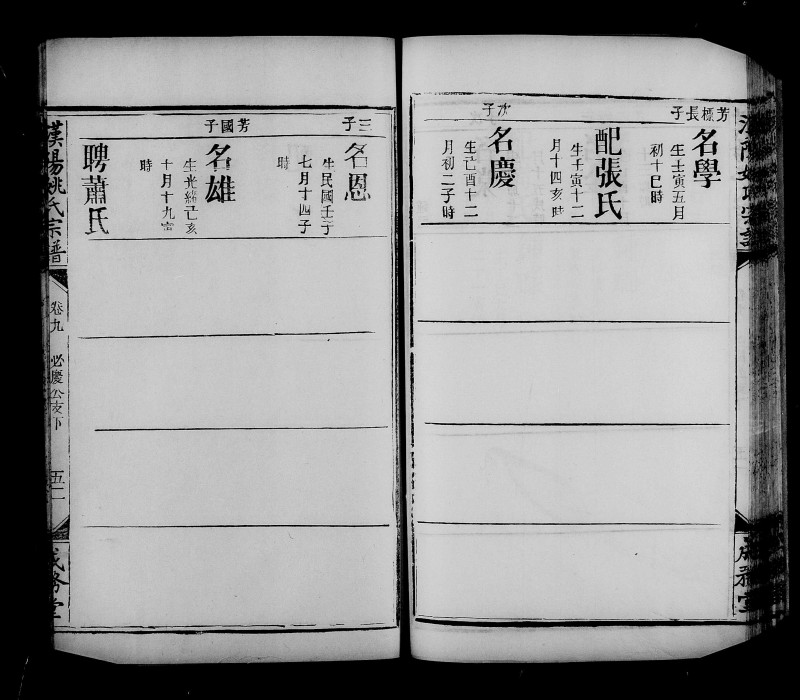 芳標長子
名學
生壬寅五月
初十巳時
配張氏
生壬寅十二
月十四亥時
次子
名慶
生己酉十二
月初二子時
三子
名恩
生民國壬子
七月十四子
時
芳國子
名雄
生光緒己亥
十月十九寅
時
聘蕭氏
漢陽姚氏宗譜
卷九
必慶公支下
五二
成務堂